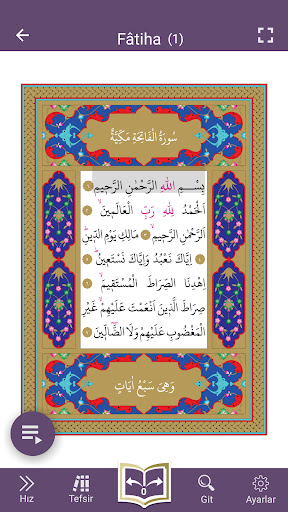 Fâtiha (1)
سُورَةُ الْفَاتِحَةِ مَكِّيَّةٌ
بِسْمِ اللّٰهِ الرَّحْمٰنِ الرَّحِيمِ ١
اَلْحَمْدُ لِلّٰهِ رَبِّ الْعَالَمِينَۙ ٢
اَلرَّحْمٰنِ الرَّحِيمِۙ ٣ مَالِكِ يَوْمِ الدِّينِۜ
٤ اِيَّاكَ نَعْبُدُ وَاِيَّاكَ نَسْتَعِينُۜ ٥
اِهْدِنَا الصِّرَاطَ الْمُسْتَقِيمَۙ ٦
صِرَاطَ الَّذِينَ اَنْعَمْتَ عَلَيْهِمْۙ غَيْرِ
الْمَغْضُوبِ عَلَيْهِمْ وَلَا الضَّٓالِّينَ ٧
وَهِىَ سَبْعُ اٰيَاتٍ
Hız
Tefsir
0
Git
Ayarlar